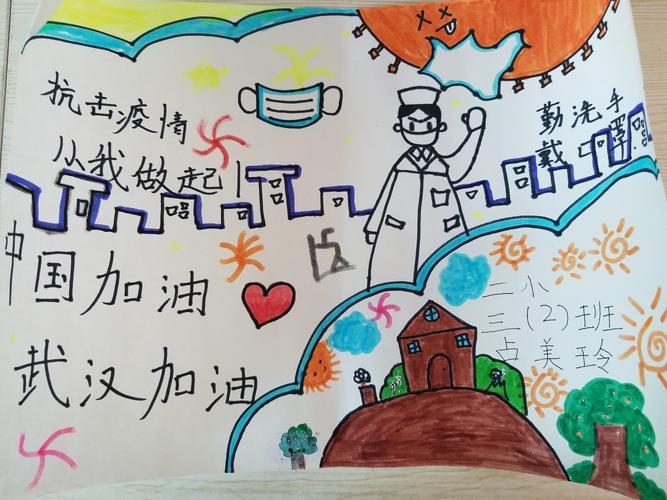 抗击疫情
从我做起!
勤洗手
戴口罩
中国加油
武汉加油
二小
三(2)班
占美玲